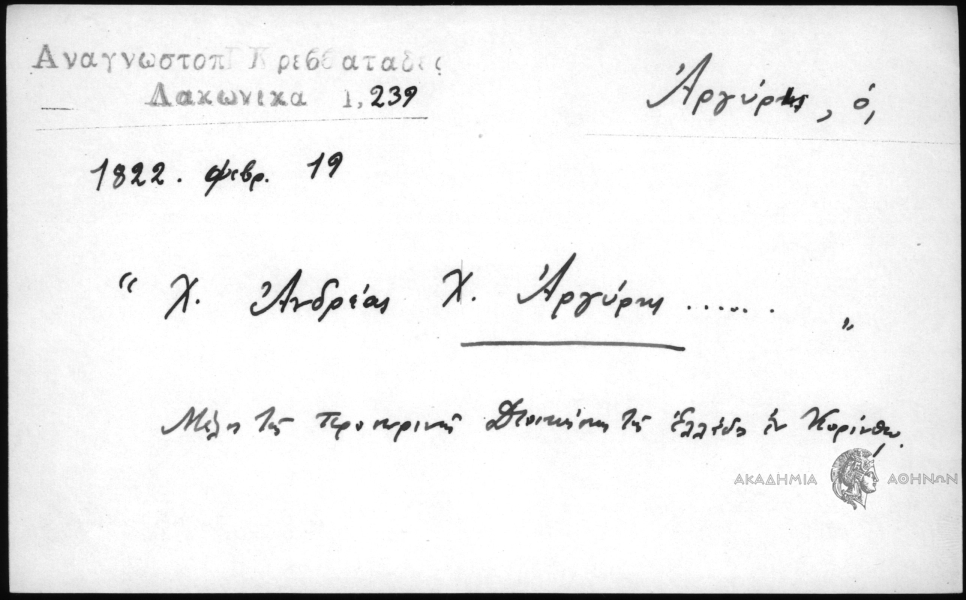 Αναγνωστοπ Κρεββαταδες
Λακωνικα 1, 239
Ἀργύρης, ὁ,
1822. Φεβρ. 19
“ Χ. Ἀνδρέας Χ. Ἀργύρης ...... „
Μέλη τῆς προσωρινῆς Διοικήσης τῆς Ἑλλάδος ἐν Κορίνθῳ.
ΑΚΑΔΗΜΙΑ ΑΘΗΝΩΝ